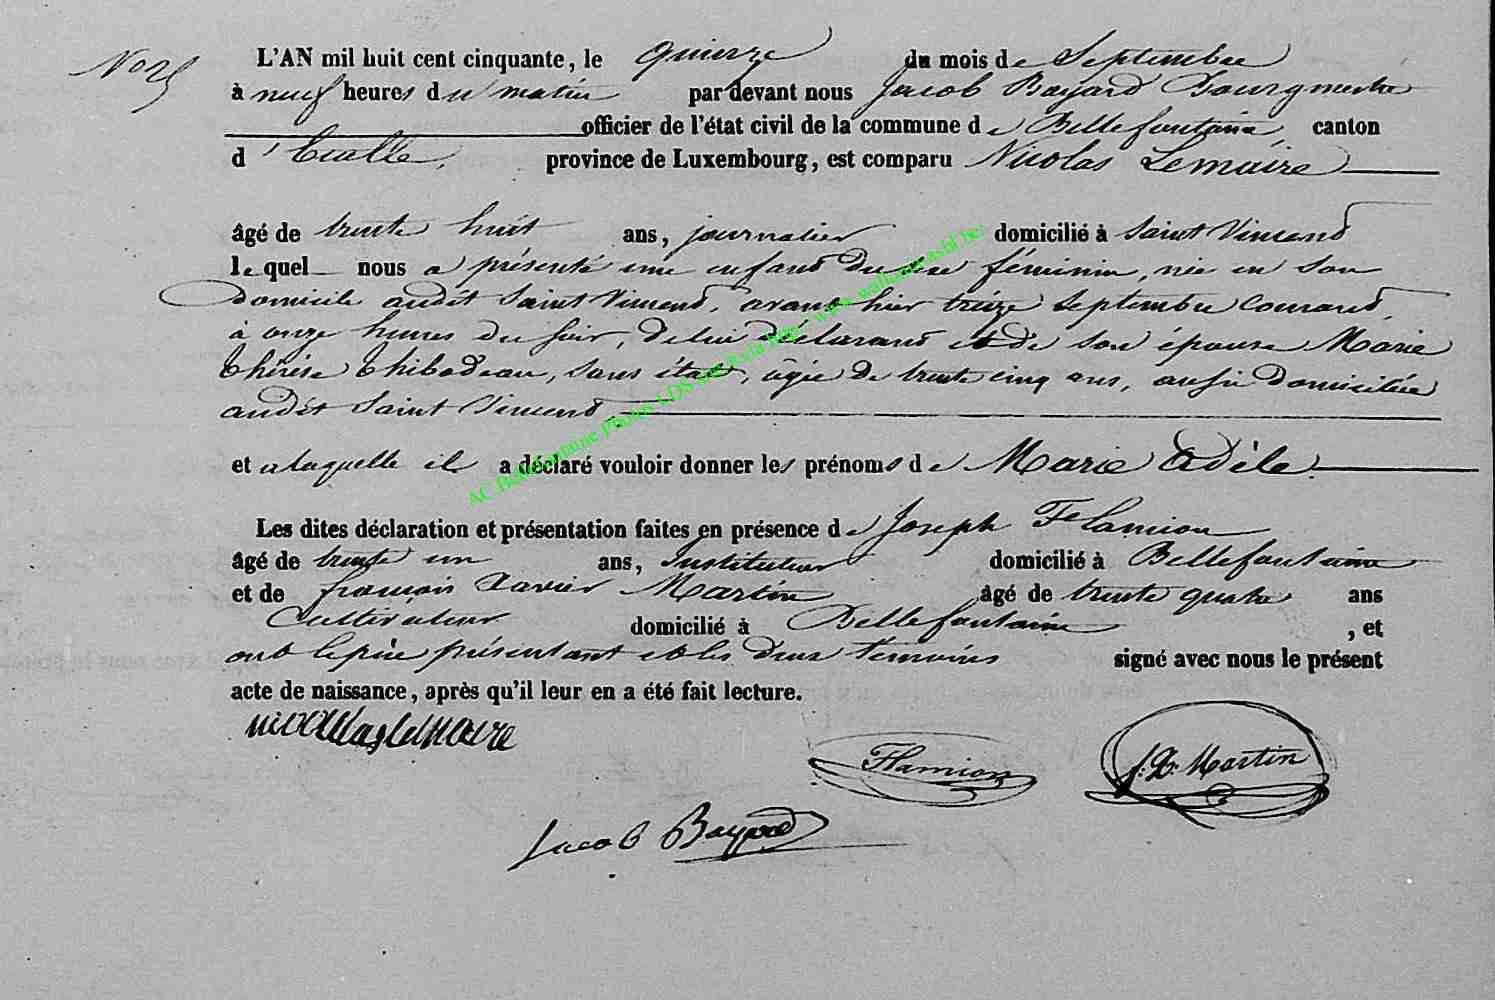 L'AN mil huit cent cinquante, le quinze du mois de Septembre
à neuf heures du matin par devant nous Jacob Bayard Bourgmestre
officier de l'état civil de la commune de Bellefontaine, canton
d'Etalle, province de Luxembourg, est comparu Nicolas Lemaire
âgé de trente huit ans, journalier domicilié à Saint Vincend
lequel nous a présenté une enfand du sexe féminin, née en son
domicile audit Saint Vincend, avant hier treize Septembre Courand,
à onze heures du soir, de lui déclarand et de son épouse Marie
Thérèse Thibodeau, sans état, âgée de trente cinq ans, aussi domiciliée
audit Saint Vincend
et a laquelle il a déclaré vouloir donner les prénoms de Marie Adèle.
Les dites déclaration et présentation faites en présence de Joseph Flamion
âgé de trente un ans, Instituteur domicilié à Bellefontaine
et de françois Xavier Martin âgé de trente quatre ans
Cultivateur domicilié à Bellefontaine, et
ont le père présentant et les deux témoins signé avec nous le présent
acte de naissance, après qu'il leur en a été fait lecture.
nicolas lemaire
Flamion
f. X. Martin
Jacob Bayard